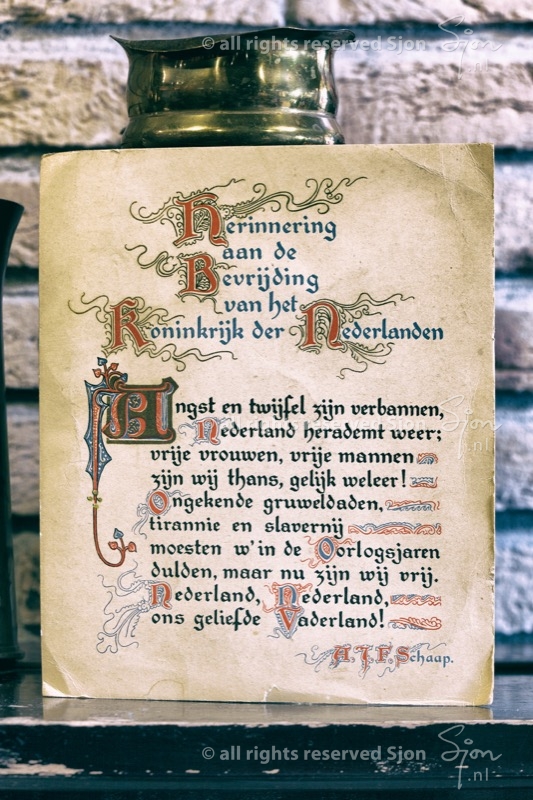 © all rights reserved Sjon
Sjon
.nl
Herinnering
aan de
Bevrijding
van het
Koninkrijk der Nederlanden
Angst en twijfel zijn verbannen,
Nederland herademt weer;
vrije vrouwen, vrije mannen
zijn wij thans, gelijk weleer!
Ongekende gruweldaden,
tirannie en slavernij
moesten w'in de Oorlogsjaren
dulden, maar nu zijn wij vrij.
Nederland, Nederland,
ons geliefde Vaderland!
A.J.F. Schaap.
Sjon
.nl
© all rights reserved Sjon
Sjon
.nl